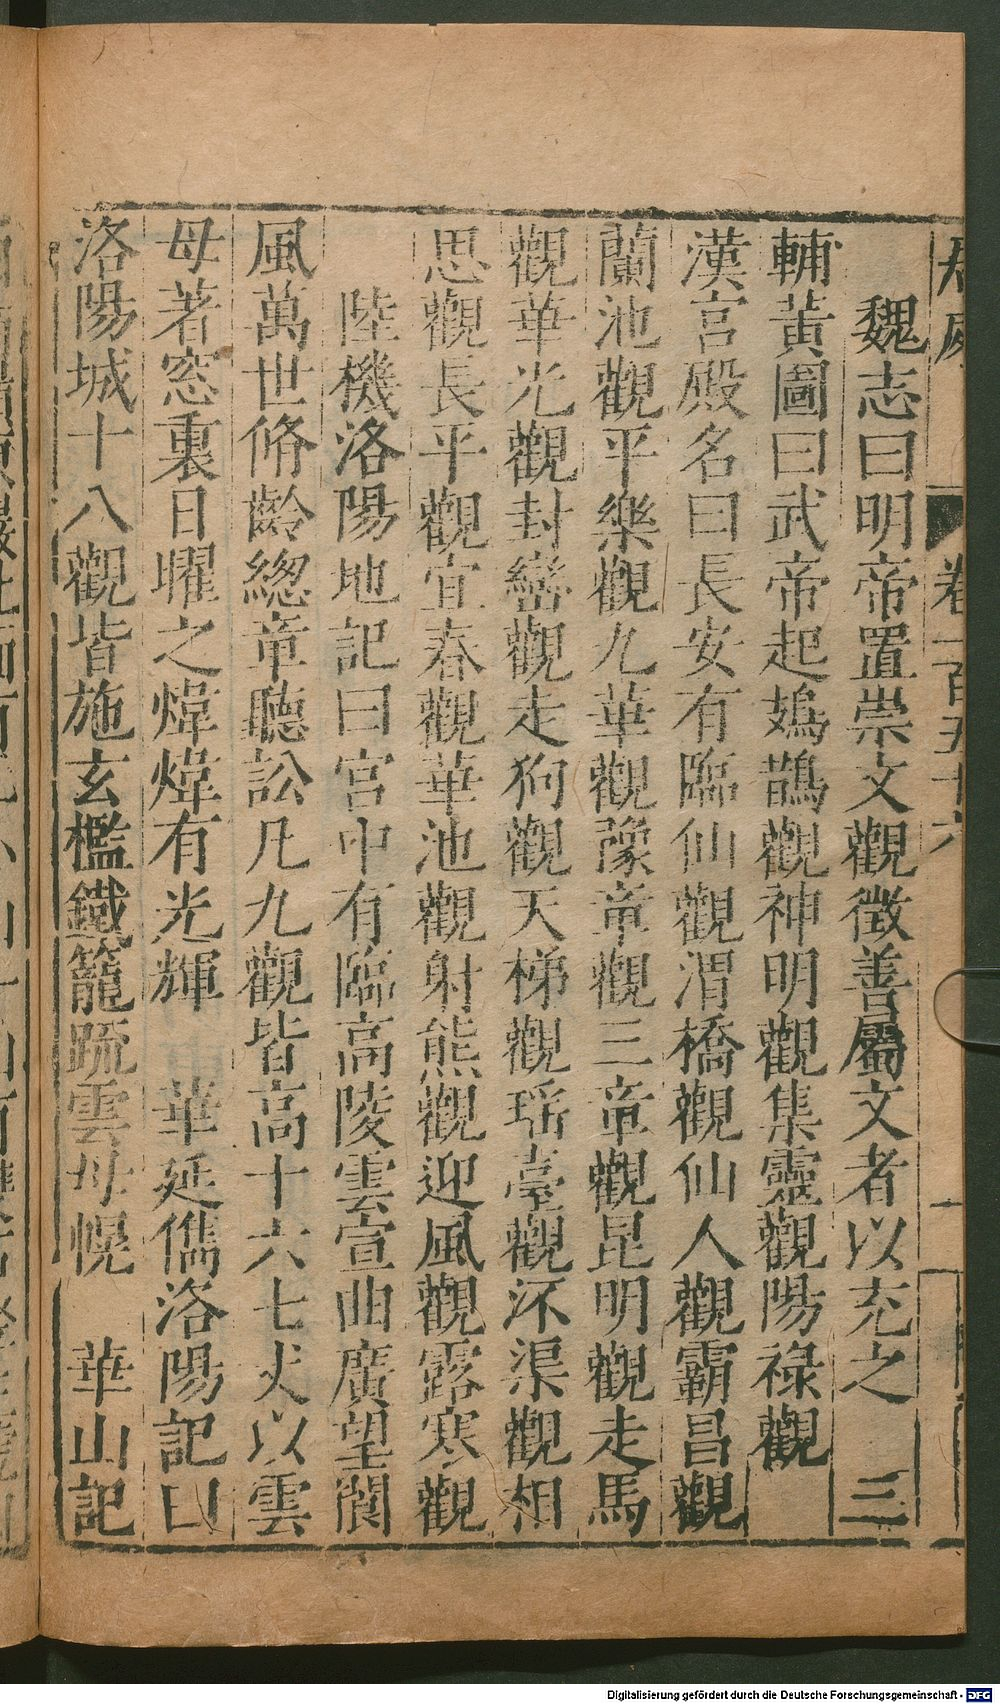 卷一百五十六
魏志曰明帝置崇文觀徵善屬文者以充之 三
輔黃圖曰武帝起鳷鵲觀神明觀集靈觀陽祿觀
漢宮殿名曰長安有臨仙觀渭橋觀仙人觀霸昌觀
蘭池觀平樂觀九華觀豫章觀三章觀昆明觀走馬
觀華光觀封巒觀走狗觀天梯觀瑤臺觀㳅渠觀相
思觀長平觀宜春觀華池觀射熊觀迎風觀露寒觀
陸機洛陽地記曰宮中有臨高陵雲宣曲廣望閬
風萬世脩齡緫章聽訟凡九觀皆高十六七丈以雲
母著窓裏日曜之煒煒有光輝 華延儁洛陽記曰
洛陽城十八觀皆施玄檻鐵籠疏雲母幌 華山記
Digitalisierung gefördert durch die Deutsche Forschungsgemeinschaft - DFG